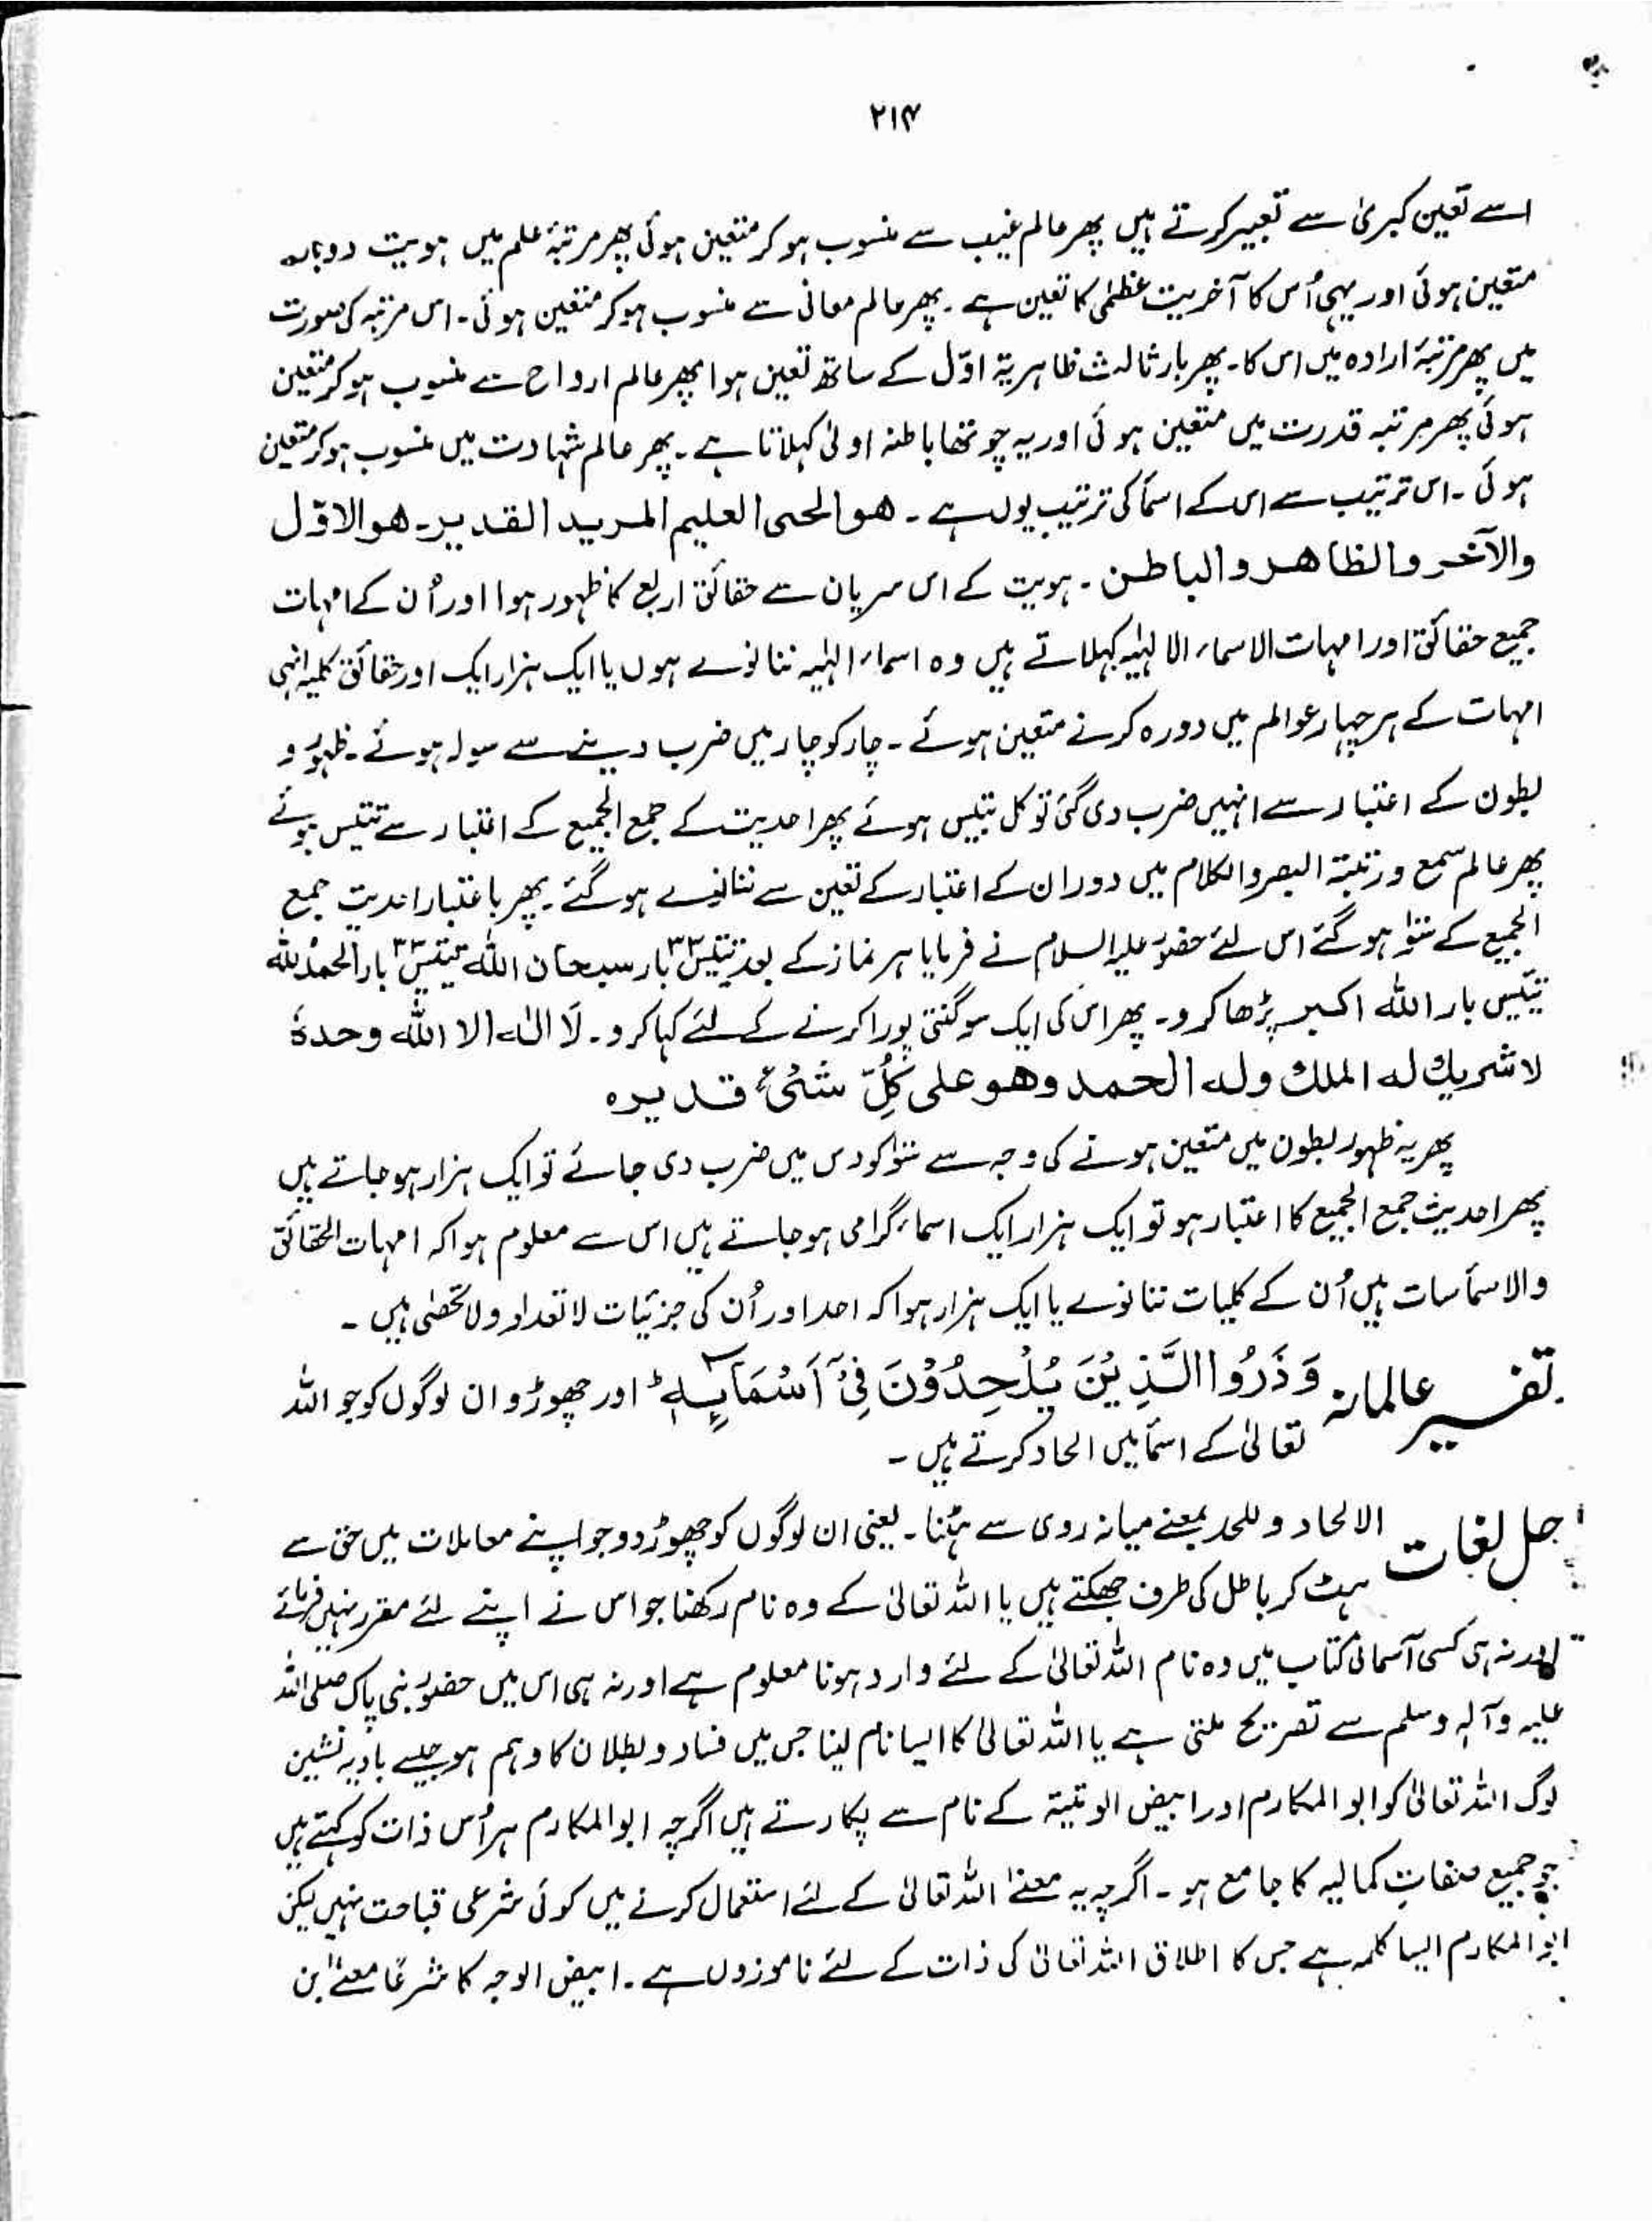 ۲۱۴
اسے تعین کبریٰ سے تعبیر کرتے ہیں پھر عالم غیب سے منسوب ہو کر متعین ہوئی پھر مرتبۂ علم میں ہویت دوبارہ
متعین ہوئی اور یہی اُس کا آخریت عظمٰی کا تعین ہے ۔ پھر عالم معانی سے منسوب ہو کر متعین ہوئی ۔ اس مرتبہ کی صورت
میں پھر مرتبۂ ارادہ میں اس کا ۔ پھر بار ثالث ظاہریۃ اوّل کے ساتھ تعین ہوا پھر عالم ارواح سے منسوب ہو کر متعین
ہوئی پھر مرتبہ قدرت میں متعین ہوئی اور یہ چوتھا باطنہ اولیٰ کہلاتا ہے ۔ پھر عالم شہادت میں منسوب ہو کر متعین
ہوئی ۔ اس ترتیب سے اس کے اسمأ کی ترتیب یوں ہے ۔ ھو الحی العلیم المرید القدیر ۔ ھو الاوّل
والآخر والظاھر والباطن ۔ ہویت کے اس سریان سے حقائق اربع کا ظہور ہوا اور اُن کے امہات
جمیع حقائق اور امہات الاسماء الالٰہیہ کہلاتے ہیں وہ اسماء الٰہیہ ننانوے ہوں یا ایک ہزار ایک اور حقائق کلیہ انہی
امہات کے ہر چہار عوالم میں دورہ کرنے متعین ہوئے ۔ چار کو چار میں ضرب دینے سے سولہ ہوئے ۔ ظہور و
بطون کے اعتبار سے انہیں ضرب دی گئی تو کل بتیس ہوئے پھر احدیت کے جمع الجمیع کے اعتبار سے تتیس ہوئے
پھر عالم سمع و رتبۃ البصر والکلام میں دوران کے اعتبار کے تعین سے ننانوے ہو گئے ۔ پھر با عتبار احدیت جمع
الجمیع کے سَو ہو گئے اس لئے حضور علیہ السلام نے فرمایا ہر نماز کے بعد تتیس ۳۳ بار سبحان اللہ تیتیس ۳۳ بار الحمدُ للہ
تیتیس بار اللہ اکبر پڑھا کرو ۔ پھر اس کی ایک سو گنتی پورا کرنے کے لئے کہا کرو ۔ لَا الٰہ الا اللہ وحدہٗ
لا شریك له الملك وله الحمد وھو علی کُلِّ شَیْءٍ قدیرہ
پھر یہ ظہور بطون میں متعین ہونے کی وجہ سے سَو کو دس میں ضرب دی جائے تو ایک ہزار ہو جاتے ہیں
پھر احدیث جمع الجمیع کا اعتبار ہو تو ایک ہزار ایک اسماء گرامی ہو جاتے ہیں اس سے معلوم ہوا کہ امہات الحقائق
والاسمأ سات ہیں اُن کے کلیات ننانوے یا ایک ہزار ہوا کہ احد اور اُن کی جزئیات لا تعداد و لا تحصٰی ہیں ۔
تفسیر عالمانہ وَذَرُوا الَّذِیْنَ یُلْحِدُوْنَ فِیْٓ اَسْمَآئِہٖ ؕ اور چھوڑو ان لوگوں کو جو اللہ
تعالیٰ کے اسمأ میں الحاد کرتے ہیں ۔
حل لغات الالحاد و للحد بمعنے میانہ روی سے ہٹنا ۔ یعنی ان لوگوں کو چھوڑ دو جو اپنے معاملات میں حق سے
ہٹ کر باطل کی طرف جھکتے ہیں یا اللہ تعالیٰ کے وہ نام رکھنا جو اس نے اپنے لئے مقرر نہیں فرمائے
اور نہ ہی کسی آسمانی کتاب میں وہ نام اللہ تعالیٰ کے لئے وارد ہونا معلوم ہے اور نہ ہی اس میں حضور نبی پاک صلی اللہ
علیہ وآلہٖ وسلم سے تصریح ملتی ہے یا اللہ تعالیٰ کا ایسا نام لینا جس میں فساد و بطلان کا وہم ہو جیسے بادیہ نشین
لوگ اللہ تعالیٰ کو ابو المکارم اور ابیض الوتیتہ کے نام سے پکارتے ہیں اگرچہ ابو المکارم ہر اُس ذات کو کہتے ہیں
جو جمیع صفاتِ کمالیہ کا جامع ہو ۔ اگرچہ یہ معنےٰ اللہ تعالیٰ کے لئے استعمال کرنے میں کوئی شرعی قباحت نہیں لیکن
ابو المکارم ایسا کلمہ ہے جس کا اطلاق اللہ تعالیٰ کی ذات کے لئے ناموزوں ہے ۔ ابیض الوجہ کا شرعًا معنےٰ ابن